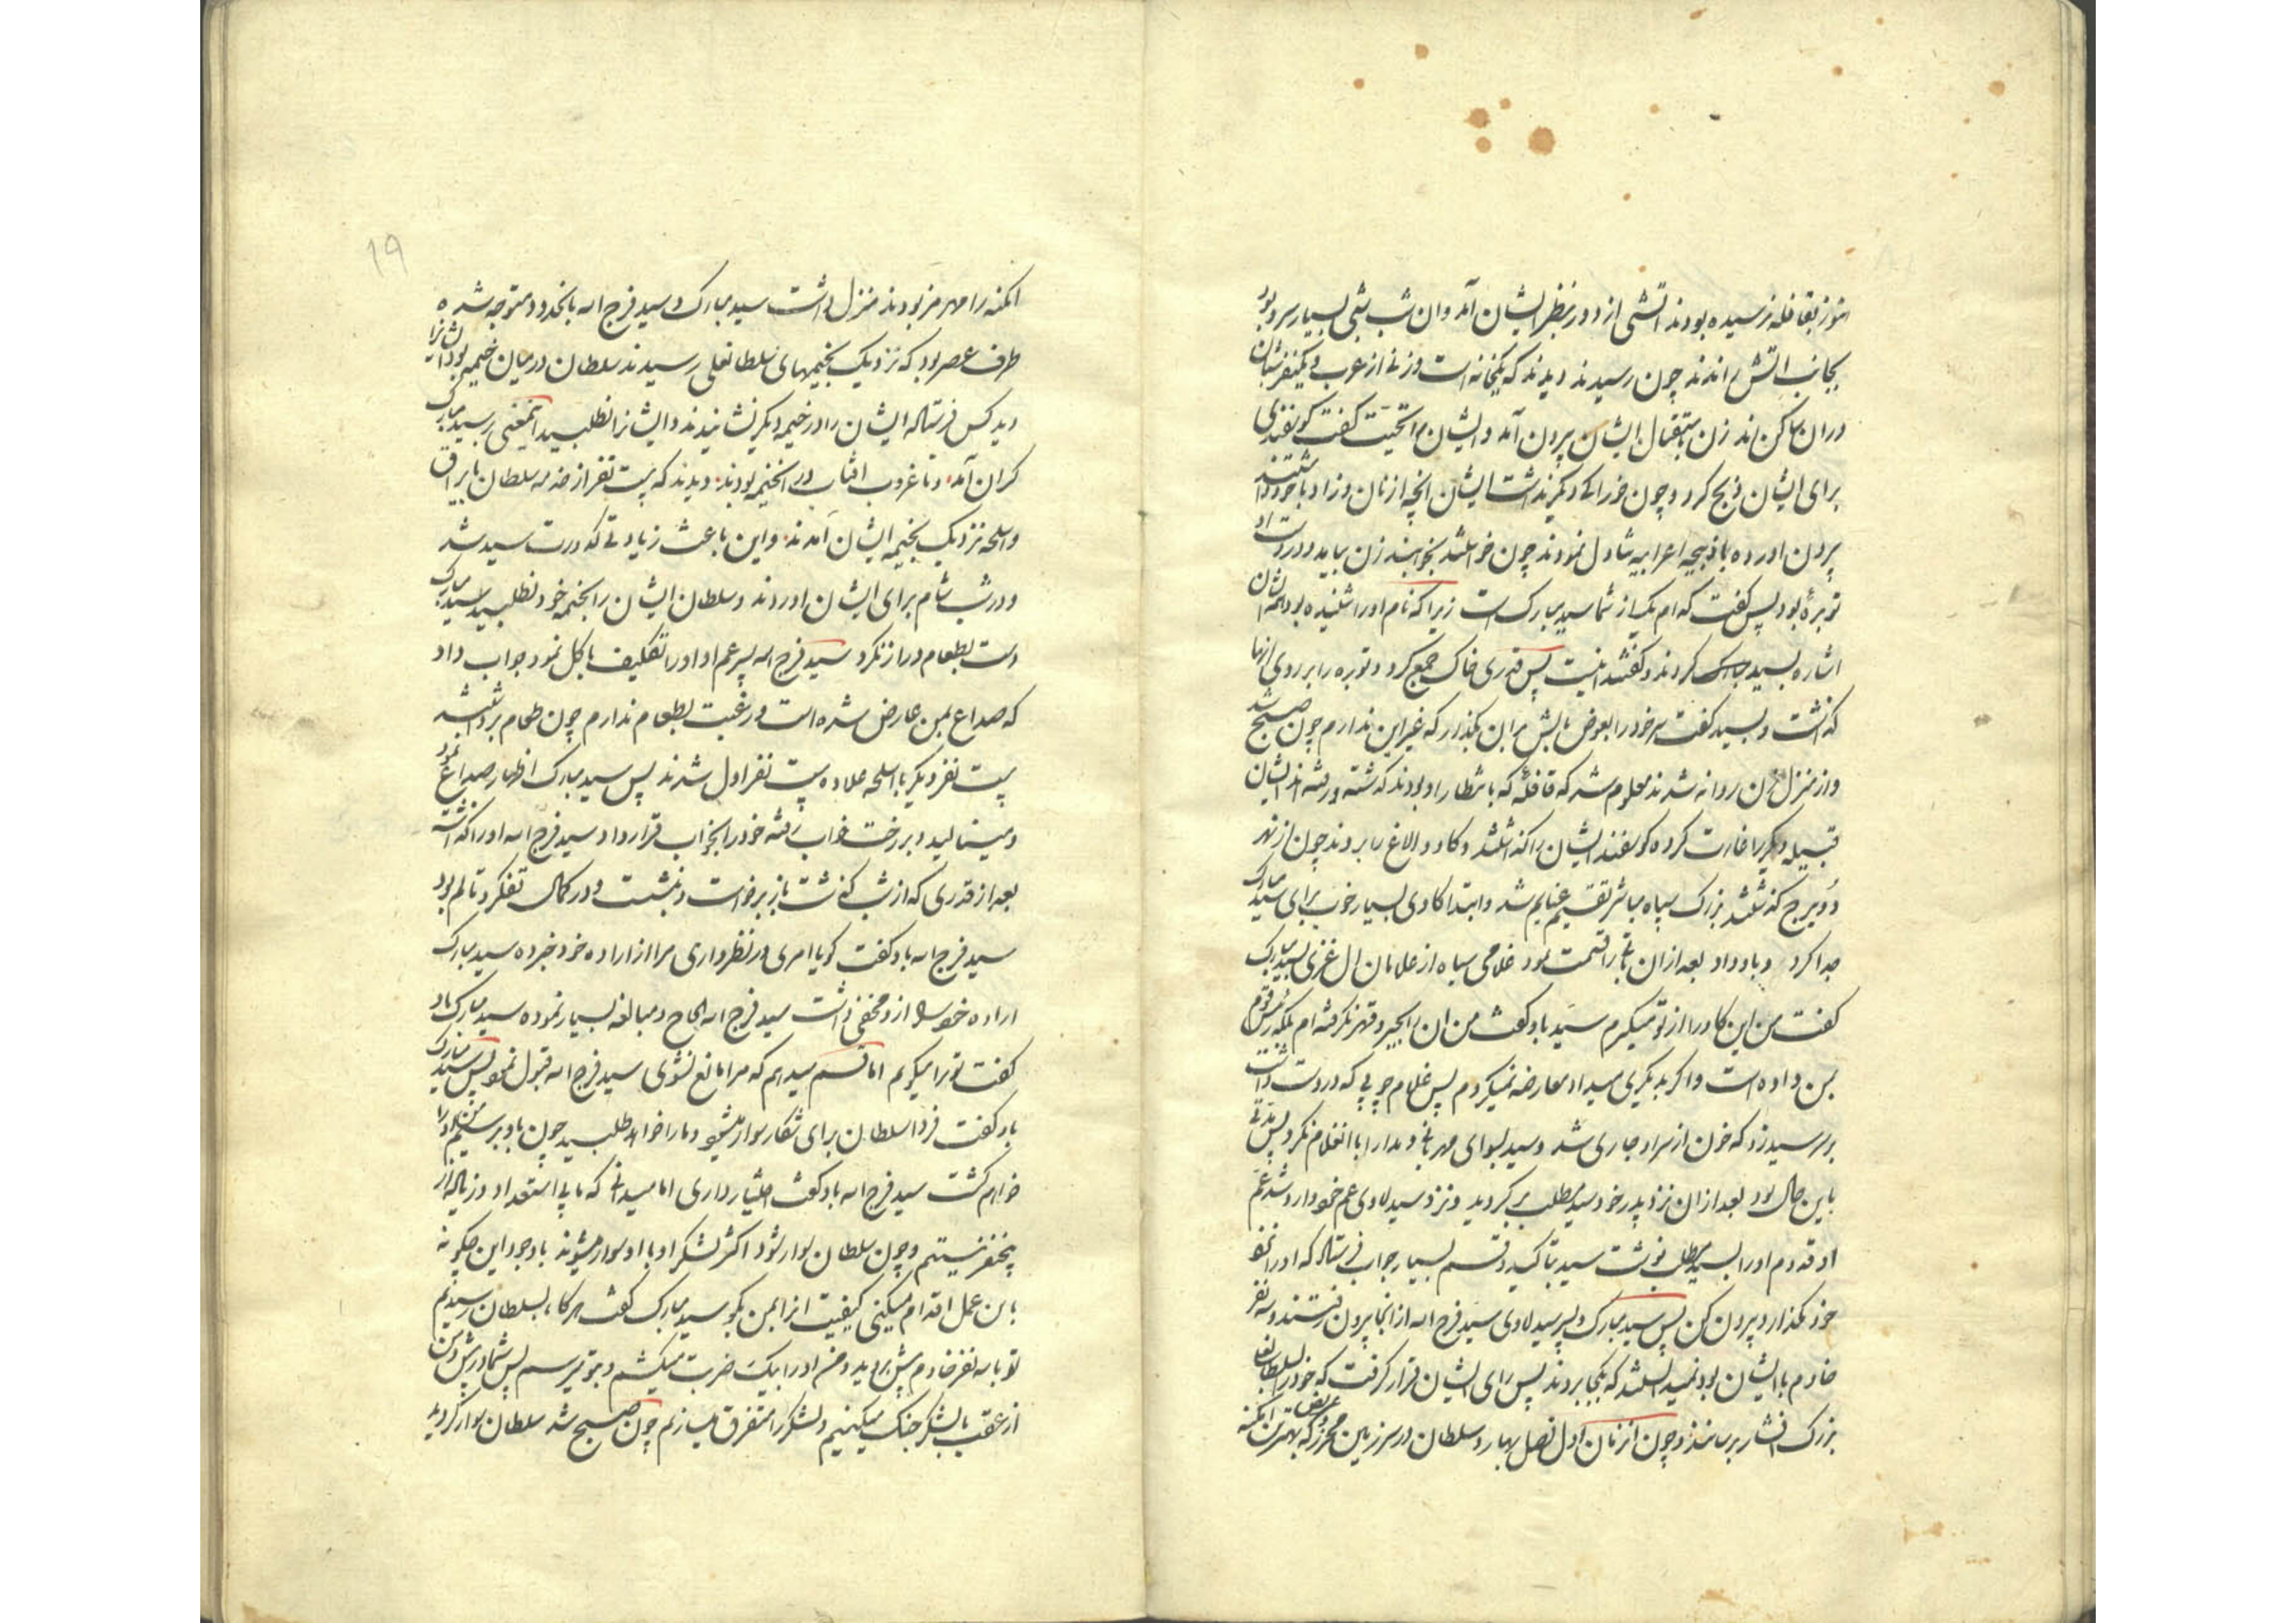 هنوز بقافله نرسیده بودند اتشی از دور بنظر ایشان آمد و ان شب شبی بسیار سرد بود
بجانب اتش راندند چون رسیدند دیدند که یکخانه است و زنی از عرب و یکنفر شبان
دران ساکن اند زن باستقبال ایشان بیرون آمد و ایشان را تحیت گفت گوسفندی
برای ایشان ذبح کرد و چون خوراکی دیگر نداشت ایشان انچه از نان و زاد با خود داشتند
بیرون اورده با ذبیحه اعرابیه تناول نمودند چون خواستند بخوابند زن بیامد و در دست او
توبرهٔ بود پس گفت که ام یک از شما سید مبارک است زیرا که نام اورا شنیده بود همراهان
اشاره بسید مبارک کردند و گفتند اینست پس قدری خاک جمع کرد و توبره را بر روی انها
گذاشت و بسید گفت سر خود را بعوض بالش بر ان بگذار که غیر این ندارم چون صبح شد
و از منزل ان روانه شدند معلوم شد که قافله که بانتظار او بودند گذشته و رفته اند ایشان
قبیله دیگر را غارت کرده گوسفند ایشان را گذاشتند و گاو و الاغ را بردند چون از نهر
دویرج گذشتند بزرک سپاه مباشر تقسیم غنایم شد و ابتدا گاوی بسیار خوب برای سید مبارک
جدا کرد و باو داد بعد ازان باقی را قسمت نمود غلامی سیاه از غلامان ال غزی بسید مبارک
گفت من این گاو را از تو میگیرم سید باو گفت من ان را بجبر و قهر نگرفته ام بلکه رئیس قوم
بمن داده است و اگر بدیگری میداد معارضه نمیکردم پس غلام چوبی که در دست داشت
بر سر سید زد که خون از سر او جاری شد و سید سوای مهربانی و مدارا با انغلام نکرد پس مدتی
باین حال بود بعد ازان نزد پدر خود سید مطلب برگردید و نزد سید لاوی عم خود وارد شد عم
او قدوم اورا بسید مطلب نوشت سید بتاکید و قسم بسیار جواب فرستاد که اورا نزد
خود نگذارد و بیرون کن پس سید مبارک و پسر سید لاوی سید فرج الله از انجا بیرون رفتند و سه نفر
خادم با ایشان بود نمیدانستند که بکجا بروند پس رای ایشان قرار گرفت که خود را بسلطانعلی
بزرک افشار برسانند و چون انزمان اول فصل بهار و سلطان در سرزمین مهرمز که بهترین امکنه
امکنه رامهرمز بودند منزل داشت سید مبارک و سید فرج الله بانحدود متوجه شده
طرف عصر بود که نزدیک بخیمهای سلطانعلی رسیدند سلطان درمیان خیمه بود ایشانرا
دید کس فرستاد ایشان را در خیمه دیگر نشانیدند و ایشانرا نطلبید اینمعنی بر سید مبارک
گران آمد و تا غروب افتاب در انخیمه بودند دیدند که بیست نفر از خدمه سلطان با یراق
و اسلحه نزدیک بخیمه ایشان آمدند و این باعث زیادتی کدورت سید شد
و در شب شام برای ایشان اوردند و سلطان ایشان را بخیمه خود نطلبید سید مبارک
دست بطعام دراز نکرد سید فرج الله پسر عم او اورا تکلیف باکل نمود جواب داد
که صداع بمن عارض شده است و رغبت بطعام ندارم چون طعام برداشته شد
بیست نفر دیگر با اسلحه علاوه بیست نفر اول شدند پس سید مبارک اظهار صداع نمود
و مینالید و بر رخت خواب رفته خود را بخواب قرار داد و سید فرج الله اورا گذاشت
بعد از قدری که از شب گذشت باز برخواست و نشست و در کمال تفکر و تالم بود
سید فرج الله باو گفت گویا امری در نظر داری مرا از اراده خود خبر ده سید مبارک
اراده خود را از و مخفی داشت سید فرج الله الحاح و مبالغه بسیار نموده سید مبارک باو
گفت تو را میگویم اما قسم میدهم که مرا مانع نشوی سید فرج الله قبول نمود پس سید مبارک
باو گفت فردا سلطان برای شکار سوار میشود و مارا خواهد طلبید چون باو برسیم من اورا
خواهم کشت سید فرج الله باو گفت اختیار داری اما میدانی که ما بی استعداد و زیاده از
پنجنفر نیستیم و چون سلطان سوار شود اکثر لشکر او با او سوار میشوند با وجود این چگونه
باین عمل اقدام میکنی کیفیت انرا بمن بگو سید مبارک گفت هرگاه بسلطان رسیدیم
تو با سه نفر خادم پیش بروید و من اورا بیک ضربت میکشم و بتو میرسم پس شما در پیش و من
از عقب با لشکر جنک میکنیم و لشکر را متفرق میسازیم چون صبح شد سلطان سوار گردید
۱۹